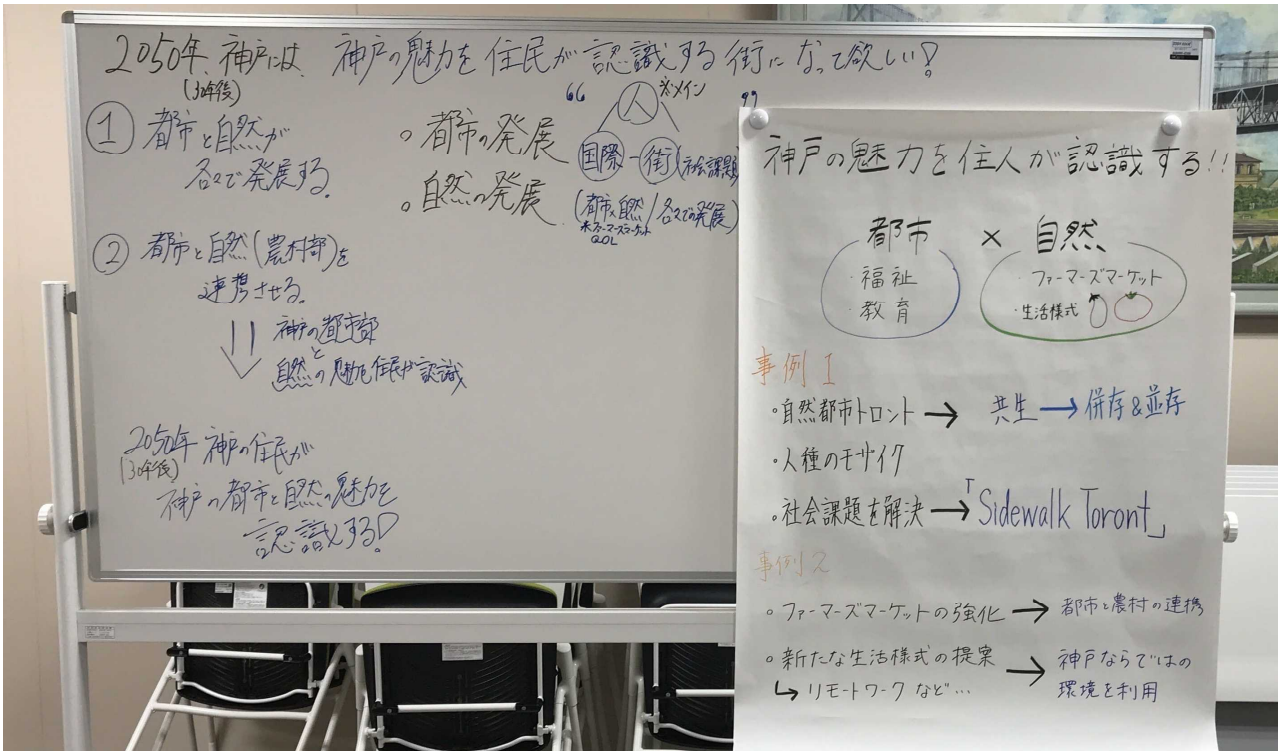 2050年、神戸には、神戸の魅力を住民が認識する街になって欲しい!
(30年後)
① 都市と自然が
各々で発展する。
② 都市と自然(農村部)を
連携させる。
神戸の都市部
と
自然の魅力を住民が認識
2050年 神戸の住民が
(30年後)
神戸の都市と自然の魅力を
認識する!
。都市の発展
。自然の発展
“ 人 ※メイン ”
国際-街(社会課題)
(都市×自然/各々での発展)
※ファーマーズマーケット
QOL
神戸の魅力を住人が認識する!!
都市 × 自然
・福祉
・教育
・ファーマーズマーケット
・生活様式
事例1
。自然都市トロント → 共生 → 併存&並存
。人種のモザイク
。社会課題を解決 → 「Sidewalk Toront」
事例2
。ファーマーズマーケットの強化 → 都市と農村の連携
。新たな生活様式の提案 → 神戸ならではの
↳ リモートワークなど… 環境を利用